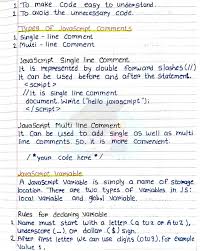 1. To make code easy to understand.
2. To avoid the unnecessary code.
Types of JavaScript Comments
1. Single - line Comment
2. Multi - line Comment
JavaScript Single line Comment
It is represented by double forward slashes (//)
It can be used before and after the statement.
<script>
// It is single line comment
document.write ("hello javascript");
</script>
JavaScript Multi line Comment
It can be used to add single as well as multi
line comments. So, it is more convenient.
/* your code here */
JavaScript Variable
A JavaScript variable is simply a name of storage
location. There are two types of variables in JS:
local variable and global variable.
Rules for declaring variable
1. Name must start with a letter (a to z or A to Z),
underscore (_) or dollar ($) sign.
2. After first letter we can use digits (0 to 9). For example
value 1,